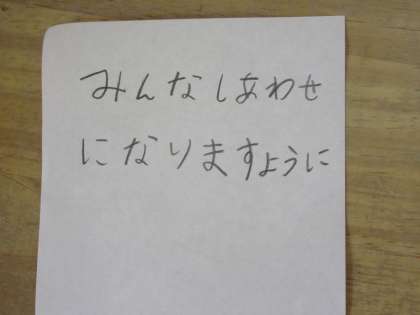 みんなしあわせ
になりますように